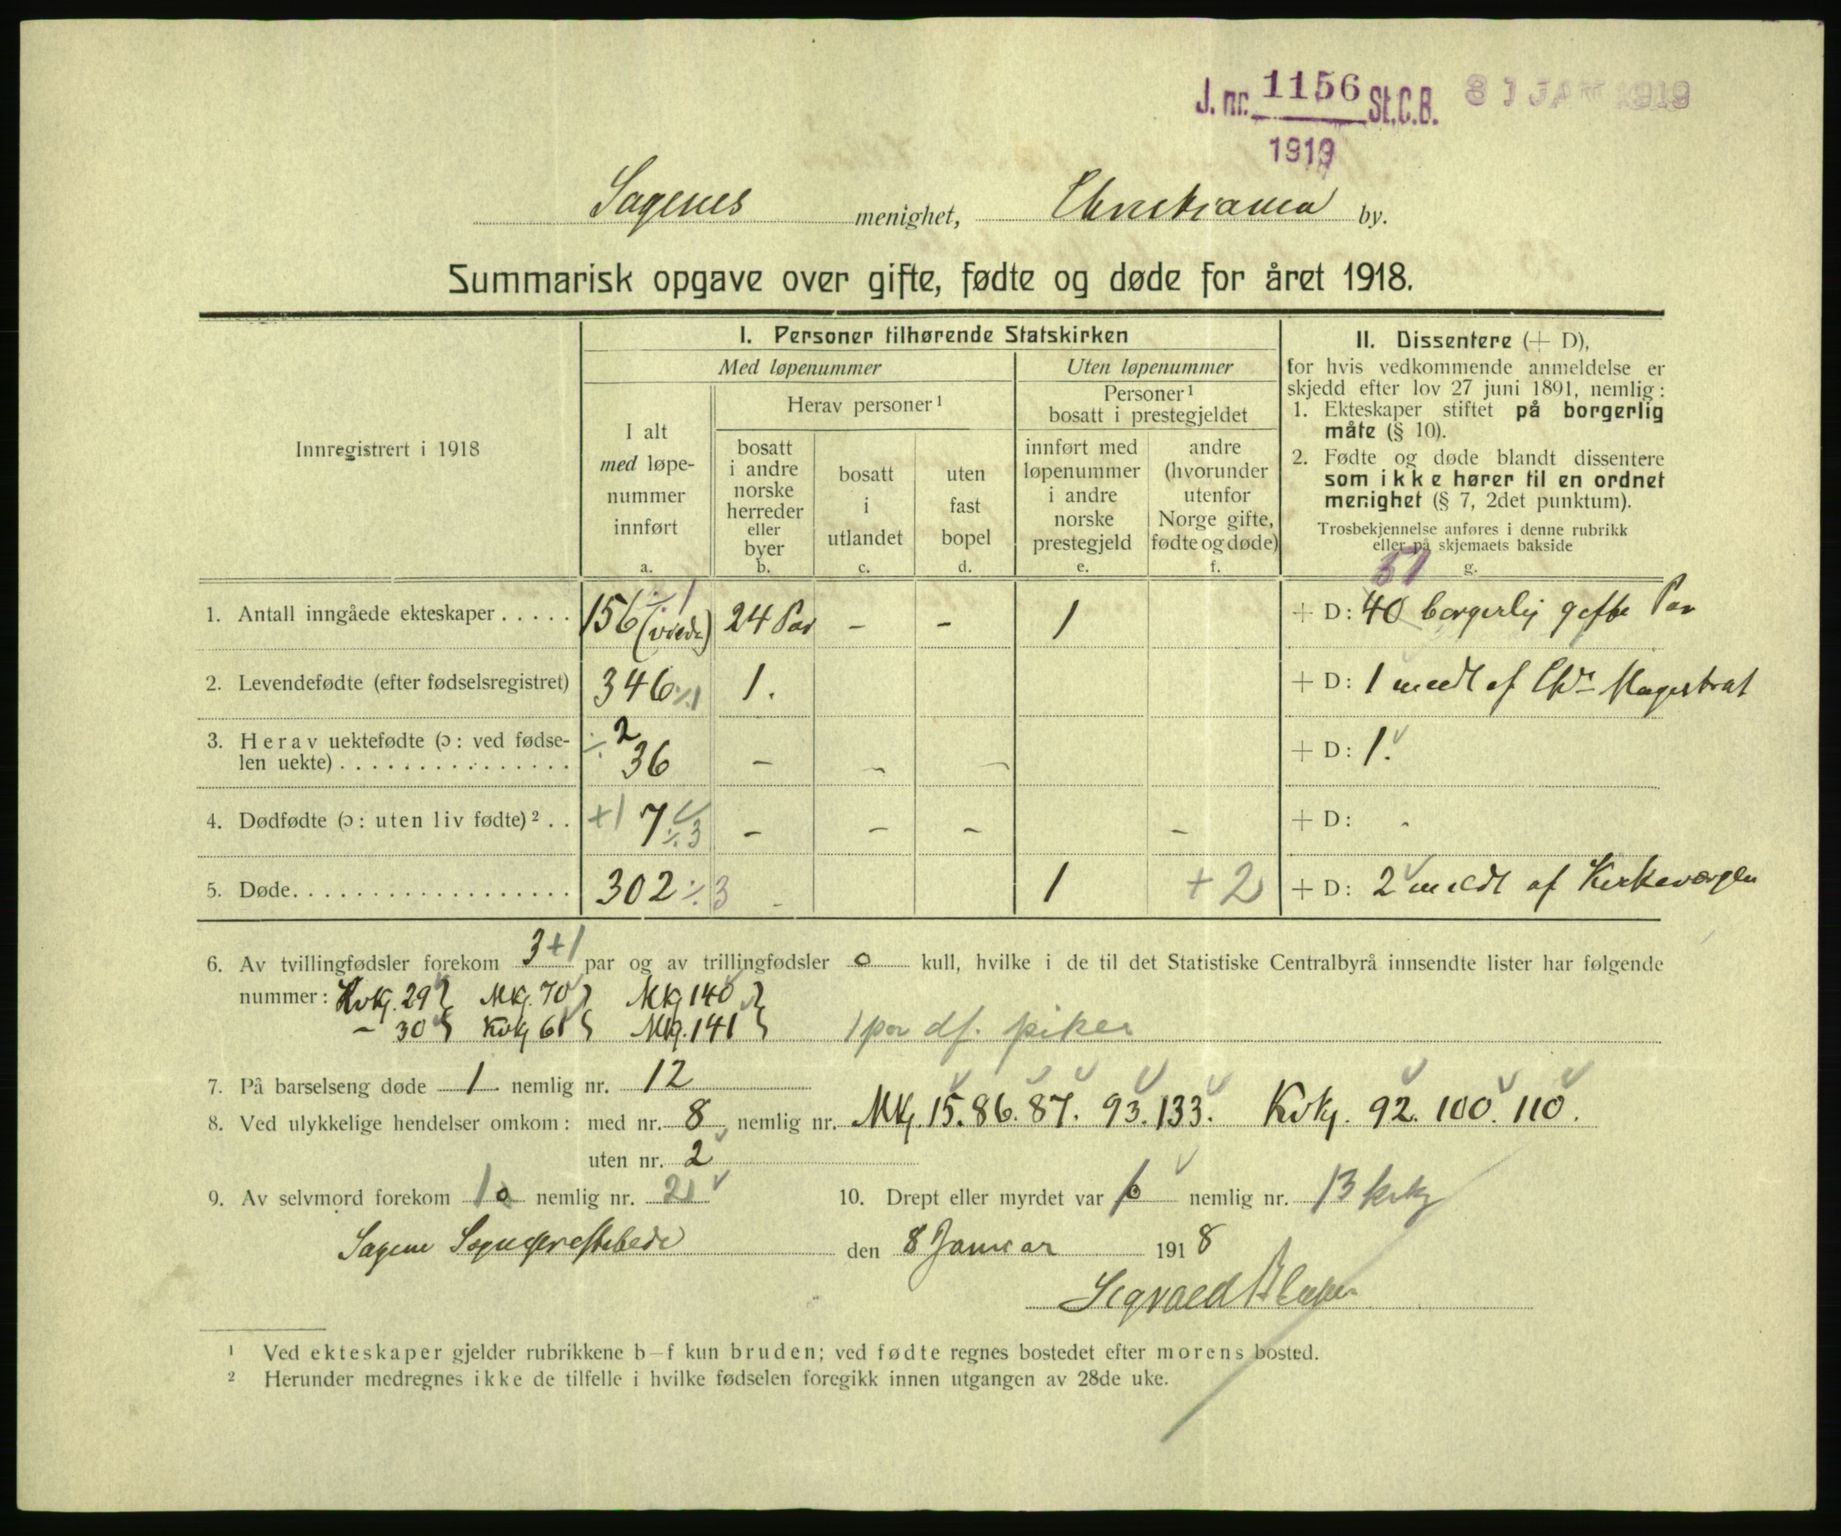 J. nr. 1156 St.C.B. 31 JAN 1919
1919
Sagenes menighet, Christiania by.
Summarisk opgave over gifte, fødte og døde for året 1918.
Innregistrert i 1918
I. Personer tilhørende Statskirken
Med løpenummer
Uten løpenummer
I alt
med løpe-
nummer
innført
a.
Herav personer ¹
bosatt
i andre
norske
herreder
eller
byer
b.
bosatt
i
utlandet
c.
uten
fast
bopel
d.
Personer ¹
bosatt i prestegjeldet
innført med
løpenummer
i andre
norske
prestegjeld
e.
andre
(hvorunder
utenfor
Norge gifte,
fødte og døde)
f.
II. Dissentere (+ D),
for hvis vedkommende anmeldelse er
skjedd efter lov 27 juni 1891, nemlig:
1. Ekteskaper stiftet på borgerlig
måte (§ 10).
2. Fødte og døde blandt dissentere
som ikke hører til en ordnet
menighet (§ 7, 2det punktum).
Trosbekjennelse anføres i denne rubrikk
eller på skjemaets bakside
g.
51
1. Antall inngåede ekteskaper . . . . . 156 ÷1 24 Par – – 1 + D: 40 borgerlig gifte Par
2. Levendefødte (efter fødselsregistret) 346 ÷1 1. + D: 1 meldt af Chr. Magistrat
3. Herav uektefødte (ɔ: ved fødse-
len uekte) . . . . . . . . . . . . . . . ÷2 36 – – – + D: 1.
4. Dødfødte (ɔ: uten liv fødte) ² . . +1 7 ÷3 – – – – + D: .
5. Døde. . . . . . . . . . . . . . . . . . 302 ÷3 - 1 +2 + D: 2 meldt af Kirkeværgen
6. Av tvillingfødsler forekom 3+1 par og av trillingfødsler 0 kull, hvilke i de til det Statistiske Centralbyrå innsendte lister har følgende
nummer: Kvkj. 29} Mkj. 70} Mkj 140}
– 30} Kvkj 61} Mkj. 141} 1 par df. piker
7. På barselseng døde 1 nemlig nr. 12
8. Ved ulykkelige hendelser omkom: med nr. 8, nemlig nr. Mkj. 15. 86. 87. 93. 133. Kvkj. 92. 100. 110.
uten nr. 2
9. Av selvmord forekom 1 0 nemlig nr. 21 10. Drept eller myrdet var 1 0 nemlig nr. 13 kvkj
Sagene Sogneprestebede den 8 Januar 1918
Sigvald
¹ Ved ekteskaper gjelder rubrikkene b–f kun bruden; ved fødte regnes bostedet efter morens bosted.
² Herunder medregnes ikke de tilfelle i hvilke fødselen foregikk innen utgangen av 28de uke.